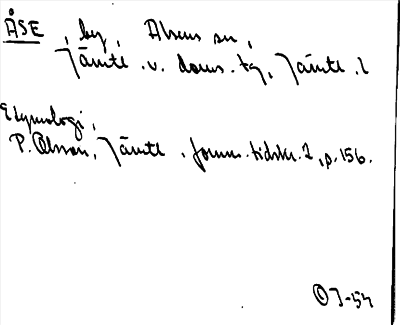 ÅSE, by, Alsens sn,
Jämtl. v. doms. tg, Jämtl. l
Etymologi,
P. Olsson, Jämtl. fornm. tidskr. 1, p. 156.
OJ-54